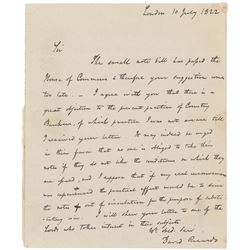 London 10 July 1822
Sir
The small note bill has passed the
House of Commons & therefore your suggestion came
too late. – I agree with you that there is a
great objection to the present practice of Country
Bankers, of which practice I was not aware till
I received your letter. It may indeed be urged
in their favor that no one is obliged to take their
notes if they do not like the conditions on which they
are issued, and I suppose that if any real inconvenience
was experienced the practical effect would be to
the notes out of circulation for the purpose of substi-
tuting coin. I will shew your letter to one of the
Lords who takes interest in these subjects.
Yr obedt. Servt
David Ricardo